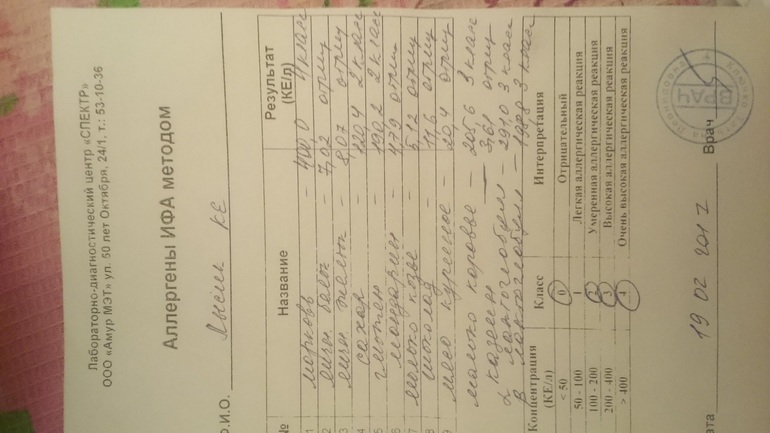 Лабораторно-диагностический центр «СПЕКТР»
ООО «Амур МЭТ» ул. 50 лет Октября, 24/1, т.: 53-10-36
Аллергены ИФА методом
Ф.И.О. КЕ
№ Название Результат (КЕ/л)
1 морковь – 400,0 4 класс
2 яичн белок – 7,02 отриц
3 яичн желток – 8,07 отриц
4 сахар 2 класс
5 глютен – 190,2 2 класс
6 мандарин – 4,79 отриц
7 молоко козье – 5,12 отриц
8 шоколад – 11,6 отриц
9 мясо куриное – 20,4 отриц
молоко коровье – 205,6 3 класс
казеин – 3,61 отриц
α лактоглобулин – 291,0 3 класс
β лактоглобулин – 3 класс
Концентрация (КЕ/л) Класс Интерпретация
< 50 0 Отрицательный
50 - 100 1 Легкая аллергическая реакция
100 - 200 2 Умеренная аллергическая реакция
200 - 400 3 Высокая аллергическая реакция
> 400 4 Очень высокая аллергическая реакция
дата 19 02 2017 Врач
ВРАЧ